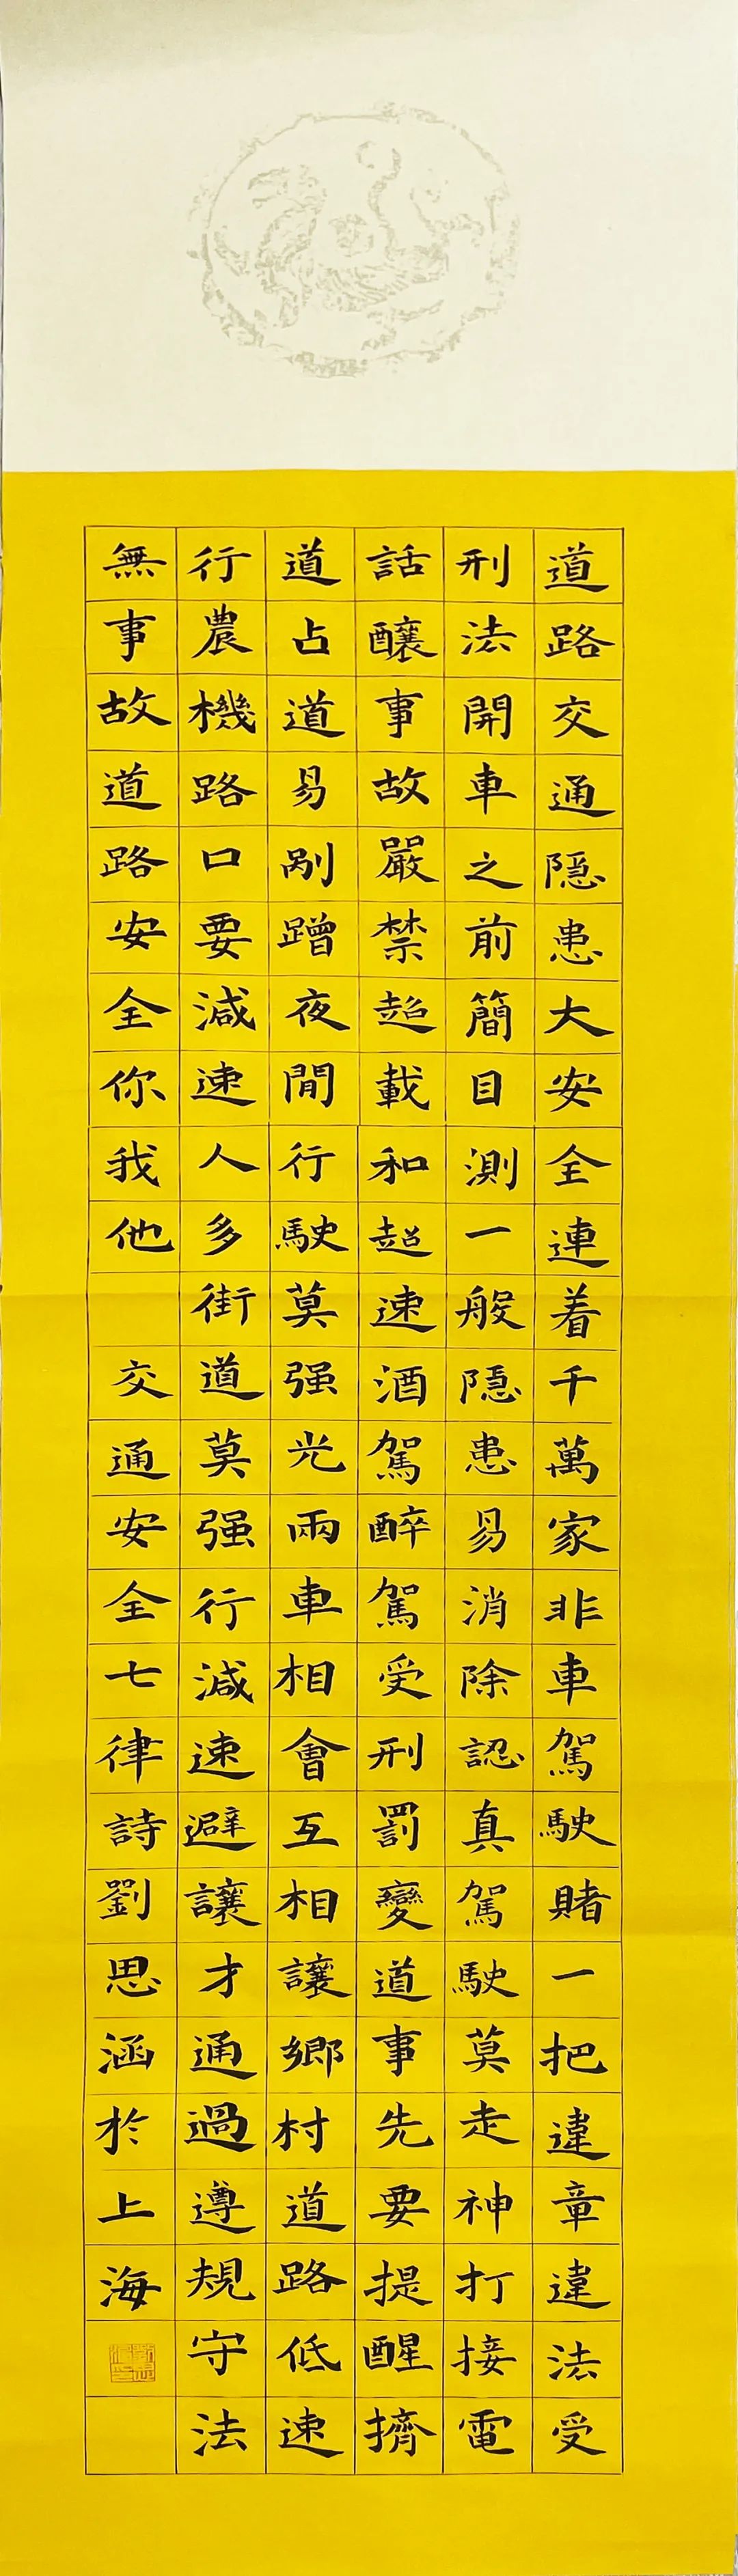 道路交通隱患大安全連着千萬家非車駕駛賭一把違章違法受
刑法開車之前簡目測一般隱患易消除認真駕駛莫走神打接電
話釀事故嚴禁超載和超速酒駕醉駕受刑罰變道事先要提醒擠
道占道易剮蹭夜間行駛莫强光兩車相會互相讓鄉村道路低速
行農機路口要減速人多街道莫强行減速避讓才通過遵規守法
無事故道路安全你我他 交通安全七律詩劉思涵於上海